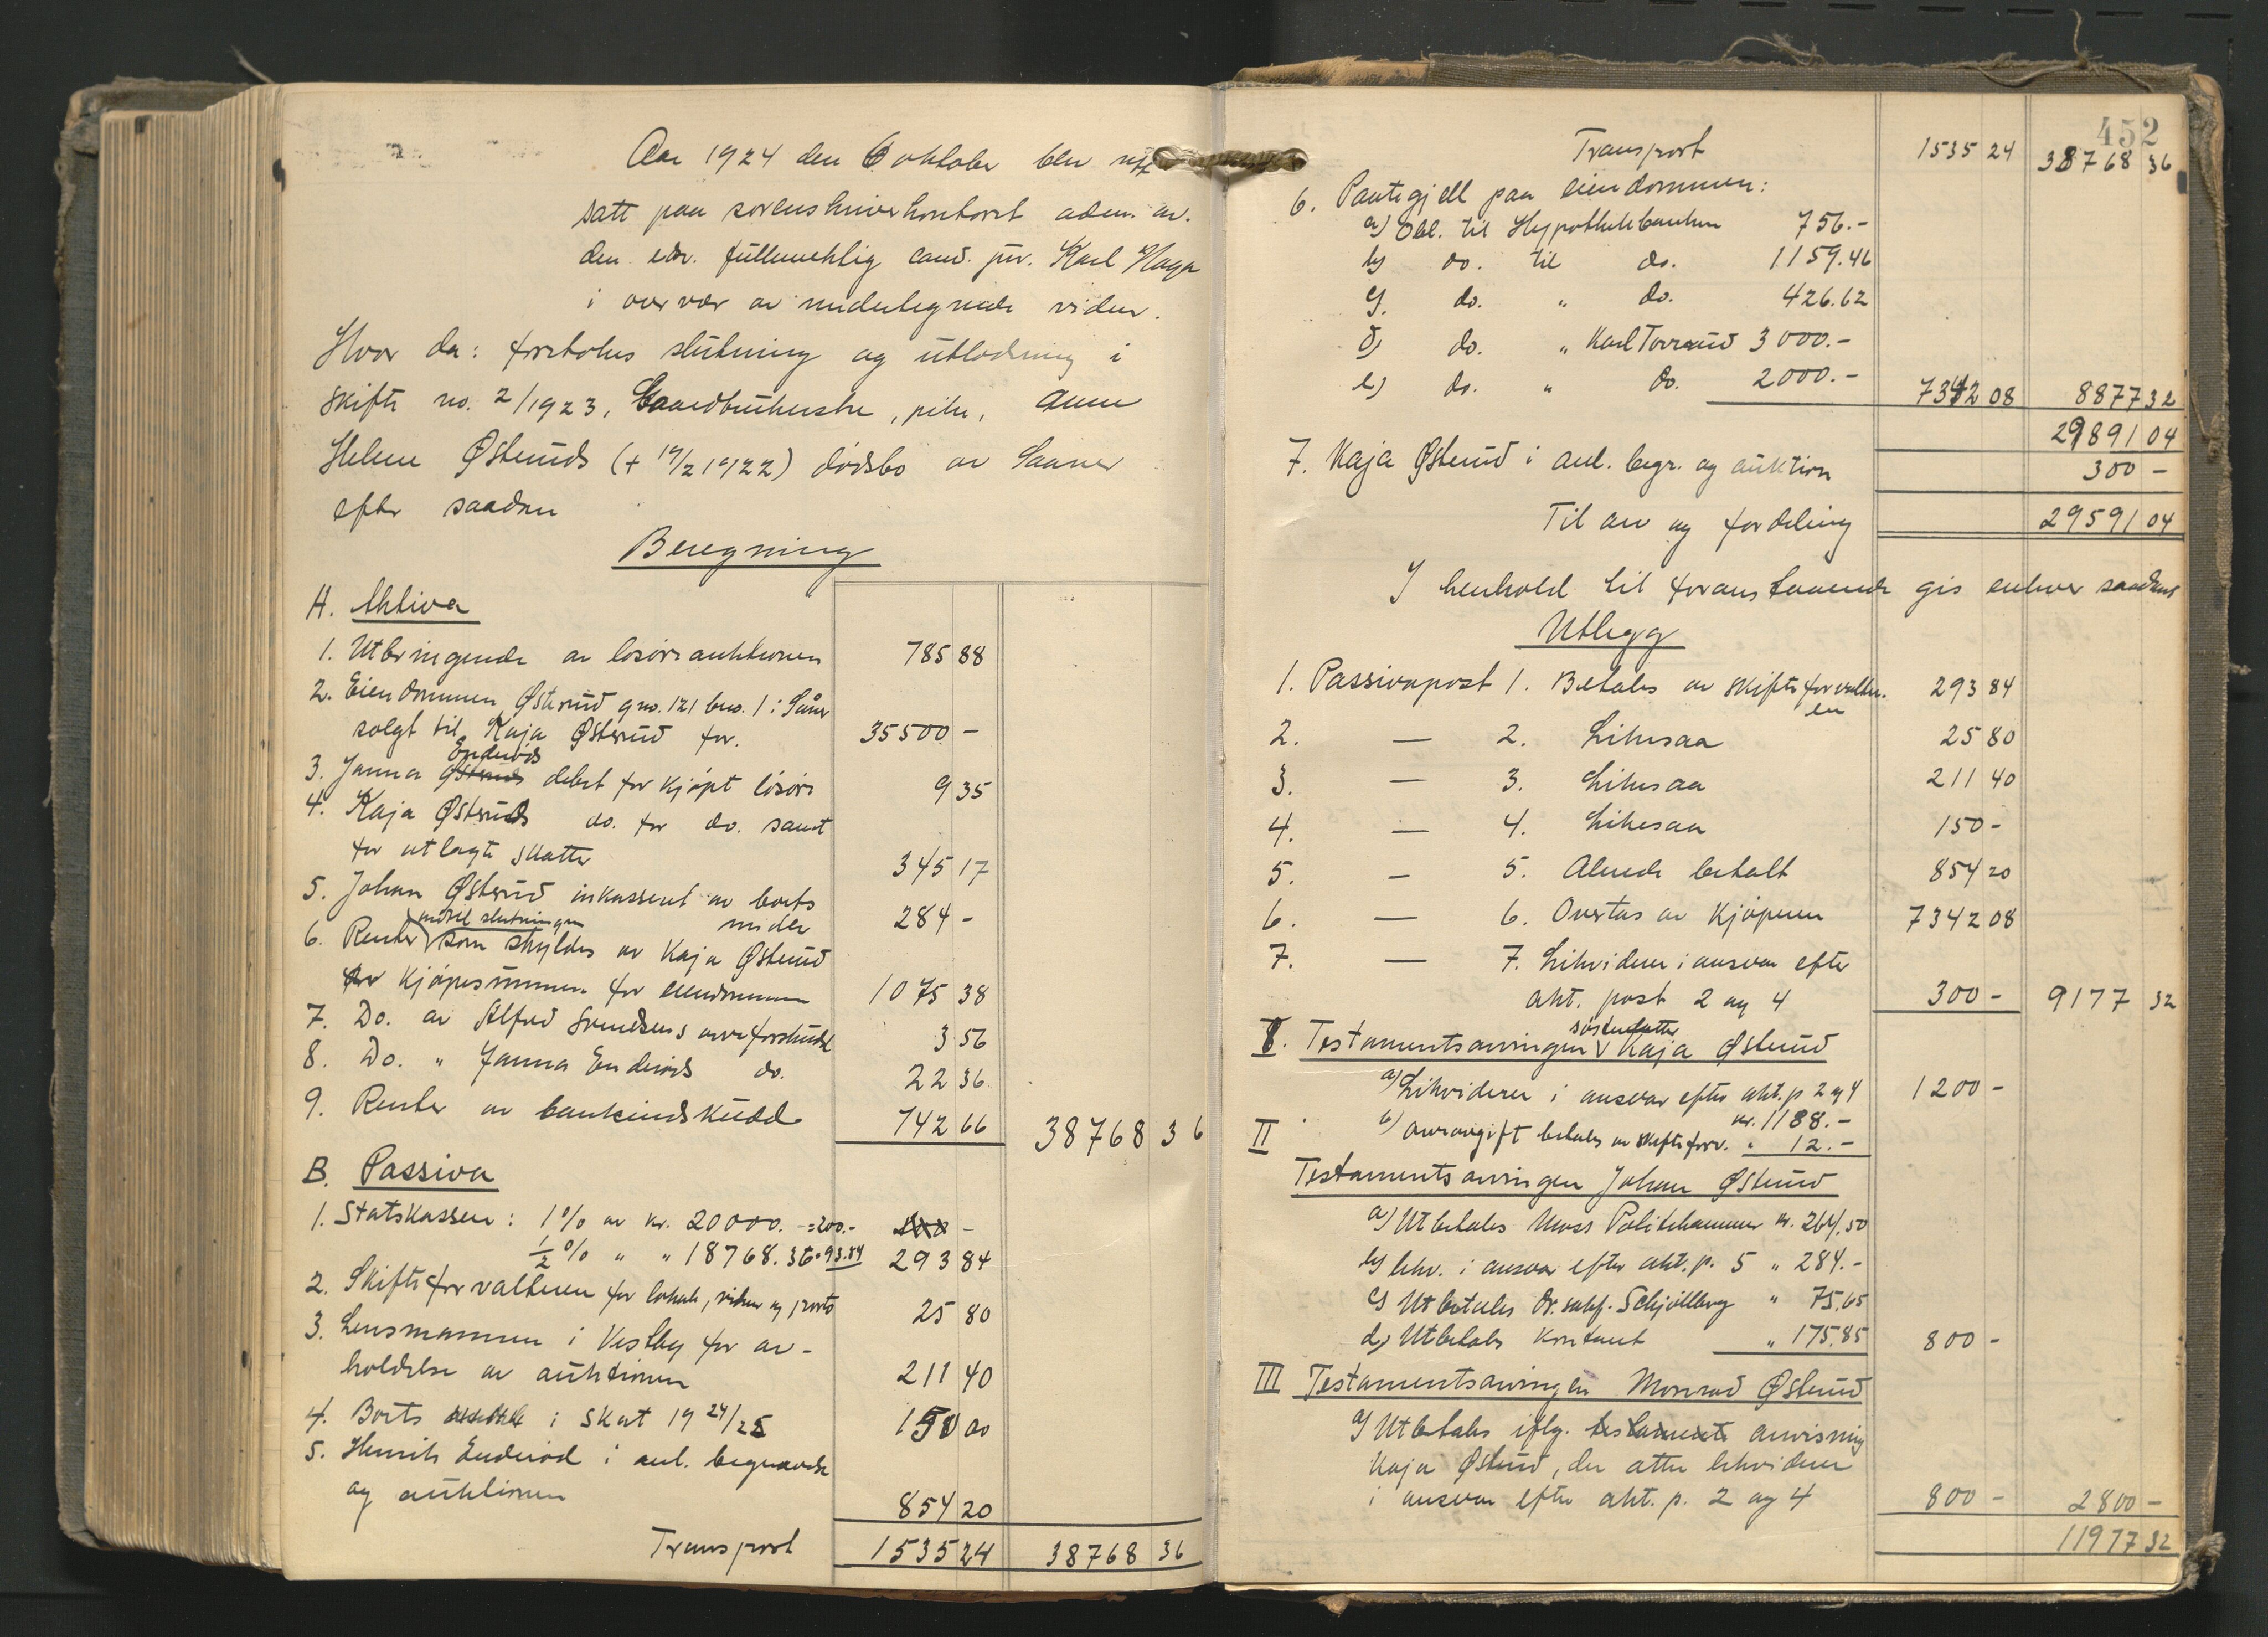 Aar 1924 den 6 oktober blev rett
satt paa sorenskriverkontoret adm. av
den edsv. fullmektig cand. jur. Karl Haga
i overvær av undertegnede vidner.
Hvor da: foretokes slutning og utlodning i
skifte no. 2/1923, Gaardbrukerske, pike, Anne
Helene Østeruds (+ 19/2 1922) dødsbo av Saaner
efter saadan
Beregning
A. Aktiva
1. Utbringende av løsøreauktionen 785 88
2. Eiendommen Østerud gno. 121 bno. 1 i Såner
solgt til Kaja Østerud for. 35500 -
Enderøds
3. Janna Østeruds debet for kjøpt løsøre 9 35
4. Kaja Østeruds do. for do. samt
for utlagte skatter 345 17
5. Johan Østerud inkassert av boets
midler 284 -
indtil slutningen
6. Renter som skyldes av Kaja Østerud
av kjøpesummen for eiendommen 1075 38
7. Do. av Alfred Svendsens arveforskudd 3 56
8. Do. " Janna Enderøds do. 22 36
9. Renter av bankindskudd 742 66 38768 36
B. Passiva
1. Statskassen: 1% av kr. 20000. =200.-
1/2% " " 18768.36=93.84 293 84
2. Skifteforvalteren for lokale, vidner og porto 25 80
3. Lensmannen i Vestby for av-
holdelse av auktionen 211 40
4. Boets i skat 1924/25 150 00
5. Henrik Enderød i anl. begravelse
og auktionen 854 20
Transport 1535 24 38768 36
452
Transport 1535 24 38768 36
6. Pantegjell paa eiendommen:
a) Obl. til Hypothekbanken 756.-
b) do. til do. 1159.46
c) do. " do. 426.62
d) do. " Karl Torrund 3000.-
e) do. " do. 2000.- 7342 08 8877 32
29891 04
7. Kaja Østerud i anl. begr. og auktion 300 -
Til arv og fordeling 29591 04
I henhold til foranstaaende gis enhver saadant
Utlegg
1. Passivapost 1. Betales av skifteforvalter-
en 293 84
2. — 2. Likesaa 25 80
3. — 3. Likesaa 211 40
4. — 4. Likesaa 150 -
5. — 5. Alerede betalt 854 20
6. — 6. Overtas av kjøperen 7342 08
7. — 7. Likviderer i ansvar efter
akt. post 2 og 4 300 - 9177 32
søsterdatter
I. Testamentsarvingen Kaja Østerud
a) Likviderer i ansvar efter akt. p 2 og 4 1200 -
kr. 1188.-
b) Arveavgift betales av skifteforv. " 12.-
II
Testamentsarvingen Johan Østerud
a) Utbetales Moss Politikammer kr. 264.50
b) likv. i ansvar efter akt. p. 5 " 284.-
c) Utbetales Or. sakf. Schjøllberg " 75.65
d) Utbetales kontant " 175.85 800 -
III Testamentsarvingen Monrad Østerud
a) Utbetales iflg. testamente anvisning
Kaja Østerud, der atter likviderer
i ansvar efter akt. p. 2 og 4 800 - 2800 -
11977 32